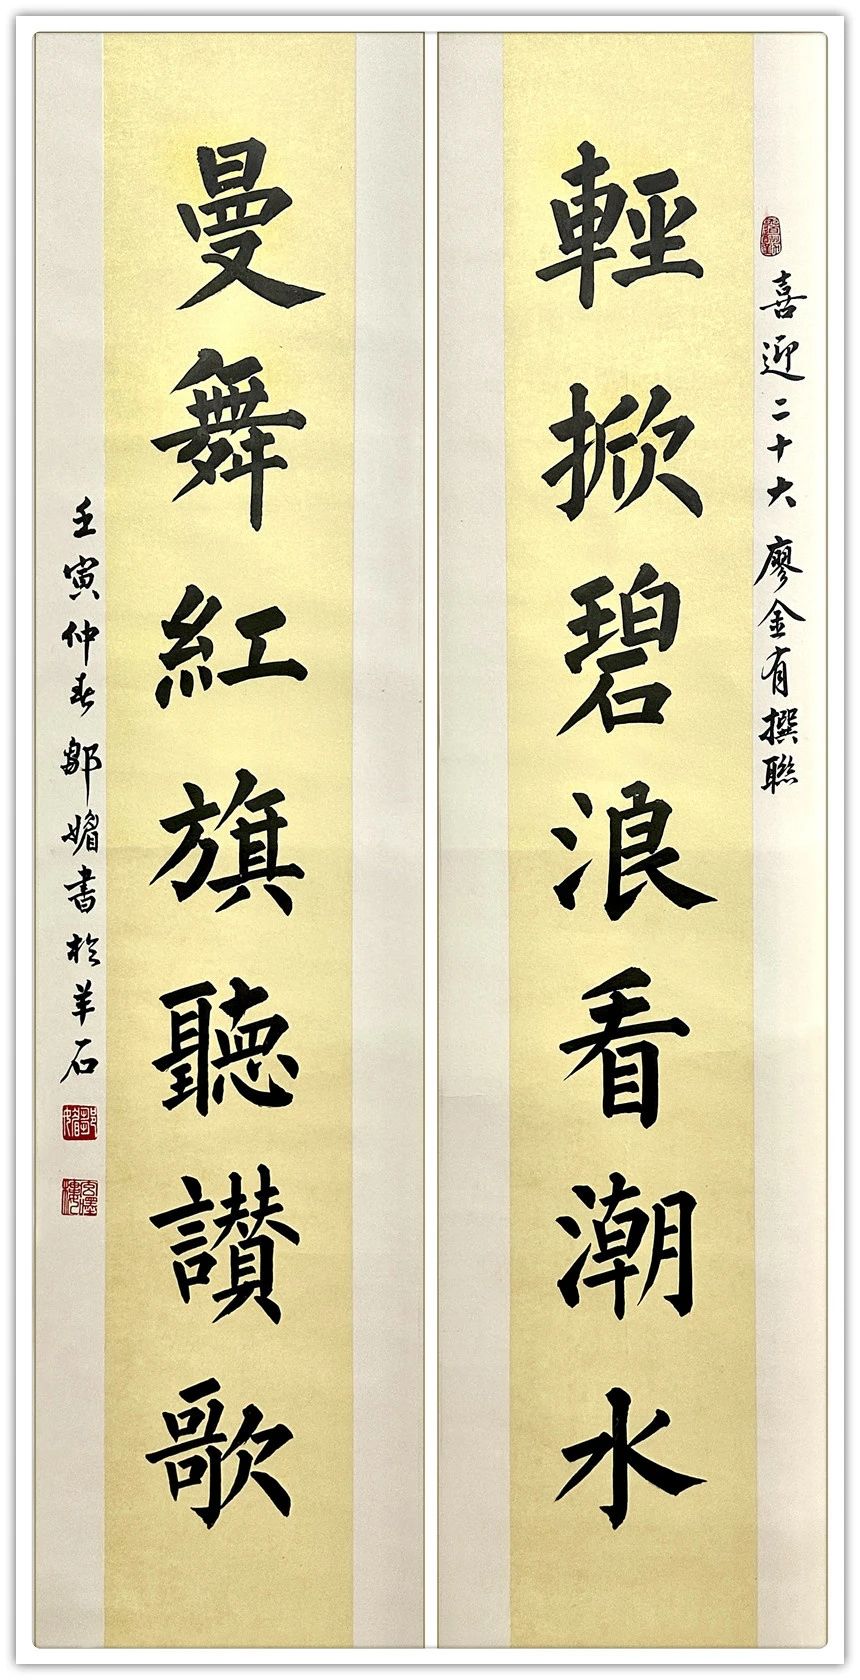 喜迎二十大 廖金有撰聯
輕掀碧浪看潮水
曼舞紅旗聽讃歌
壬寅仲春鄒媚書於羊石